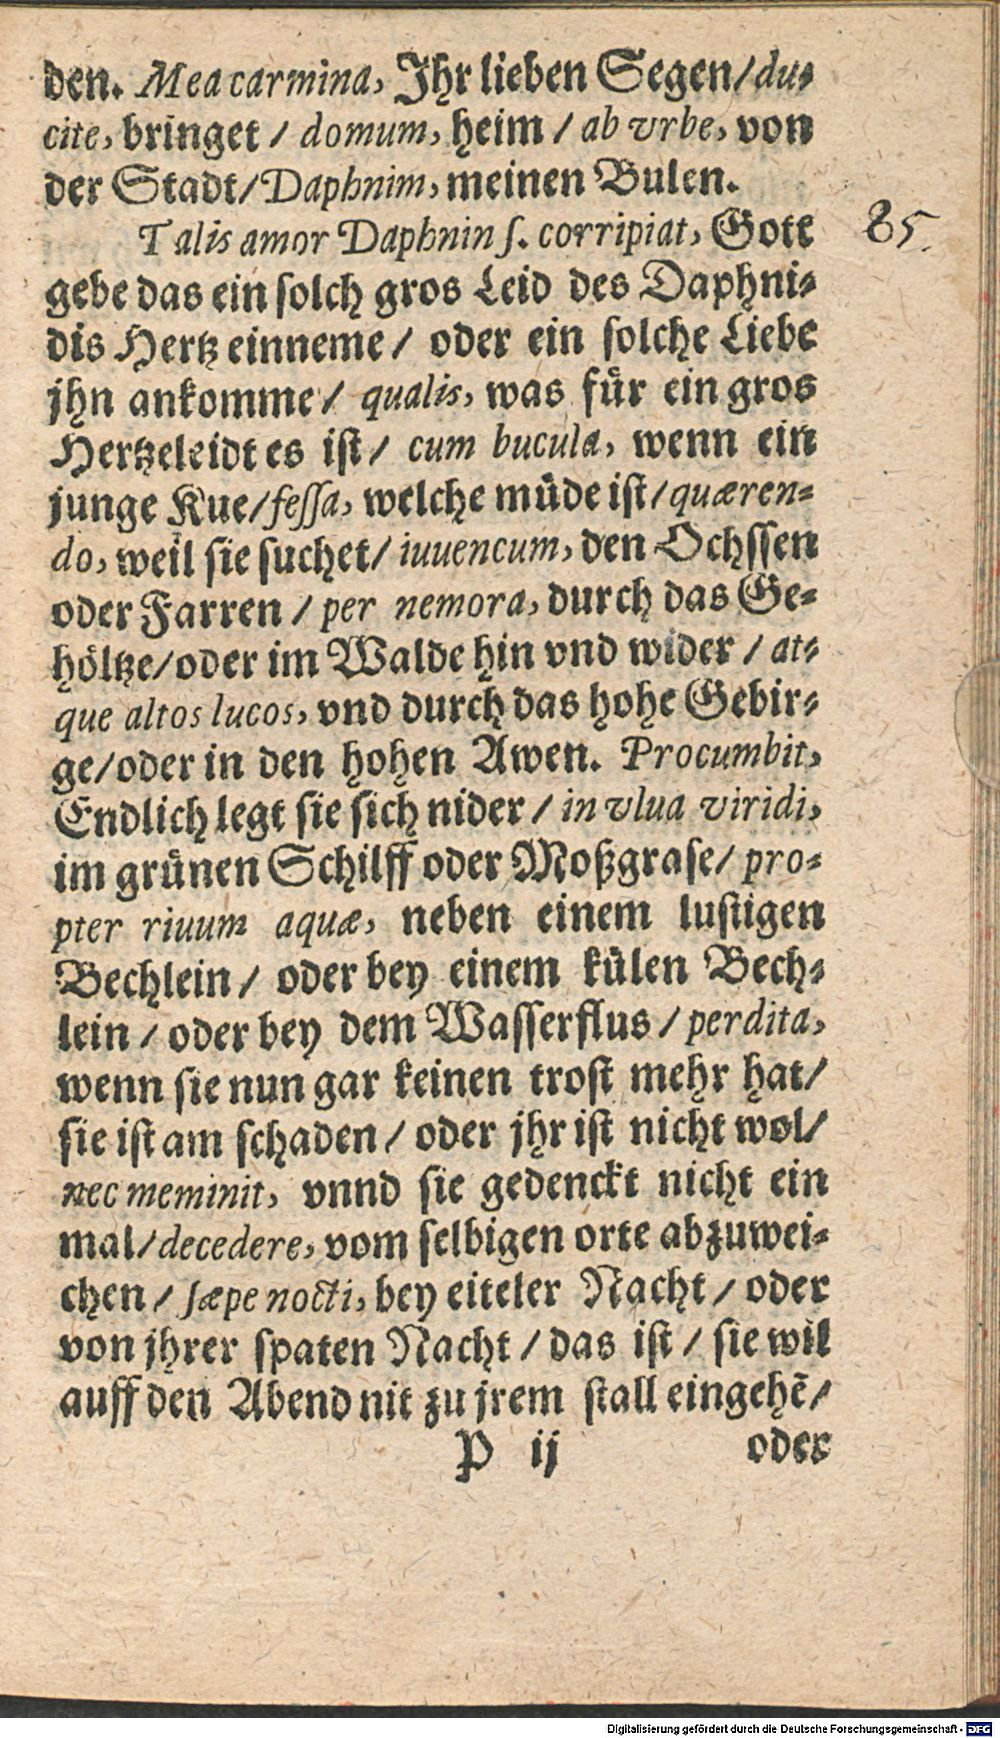 den. Mea carmina, Jhr lieben Segen/du-
cite, bringet / domum, heim / ab vrbe, von
der Stadt/Daphnim, meinen Bulen.
Talis amor Daphnin s. corripiat, Gott
85.
gebe das ein solch gros Leid des Daphni-
dis Hertz einneme / oder ein solche Liebe
jhn ankomme / qualis, was für ein gros
Hertzeleidt es ist / cum bucula, wenn ein
junge Kue/fessa, welche müde ist/quæren-
do, weil sie suchet/ iuuencum, den Ochssen
oder Farren / per nemora, durch das Ge-
höltze/oder im Walde hin vnd wider / at-
que altos lucos, vnd durch das hohe Gebir-
ge/oder in den hohen Awen. Procumbit,
Endlich legt sie sich nider / in vlua viridi,
im grünen Schilff oder Moßgrase/ pro-
pter riuum aquæ, neben einem lustigen
Bechlein / oder bey einem külen Bech-
lein / oder bey dem Wasserflus / perdita,
wenn sie nun gar keinen trost mehr hat/
sie ist am schaden / oder jhr ist nicht wol/
nec meminit, vnnd sie gedenckt nicht ein
mal/decedere, vom selbigen orte abzuwei-
chen / sæpe nocti, bey eiteler Nacht / oder
von jhrer spaten Nacht / das ist / sie wil
auff den Abend nit zu jrem stall eingehē/
P ij oder
Digitalisierung gefördert durch die Deutsche Forschungsgemeinschaft - DFG